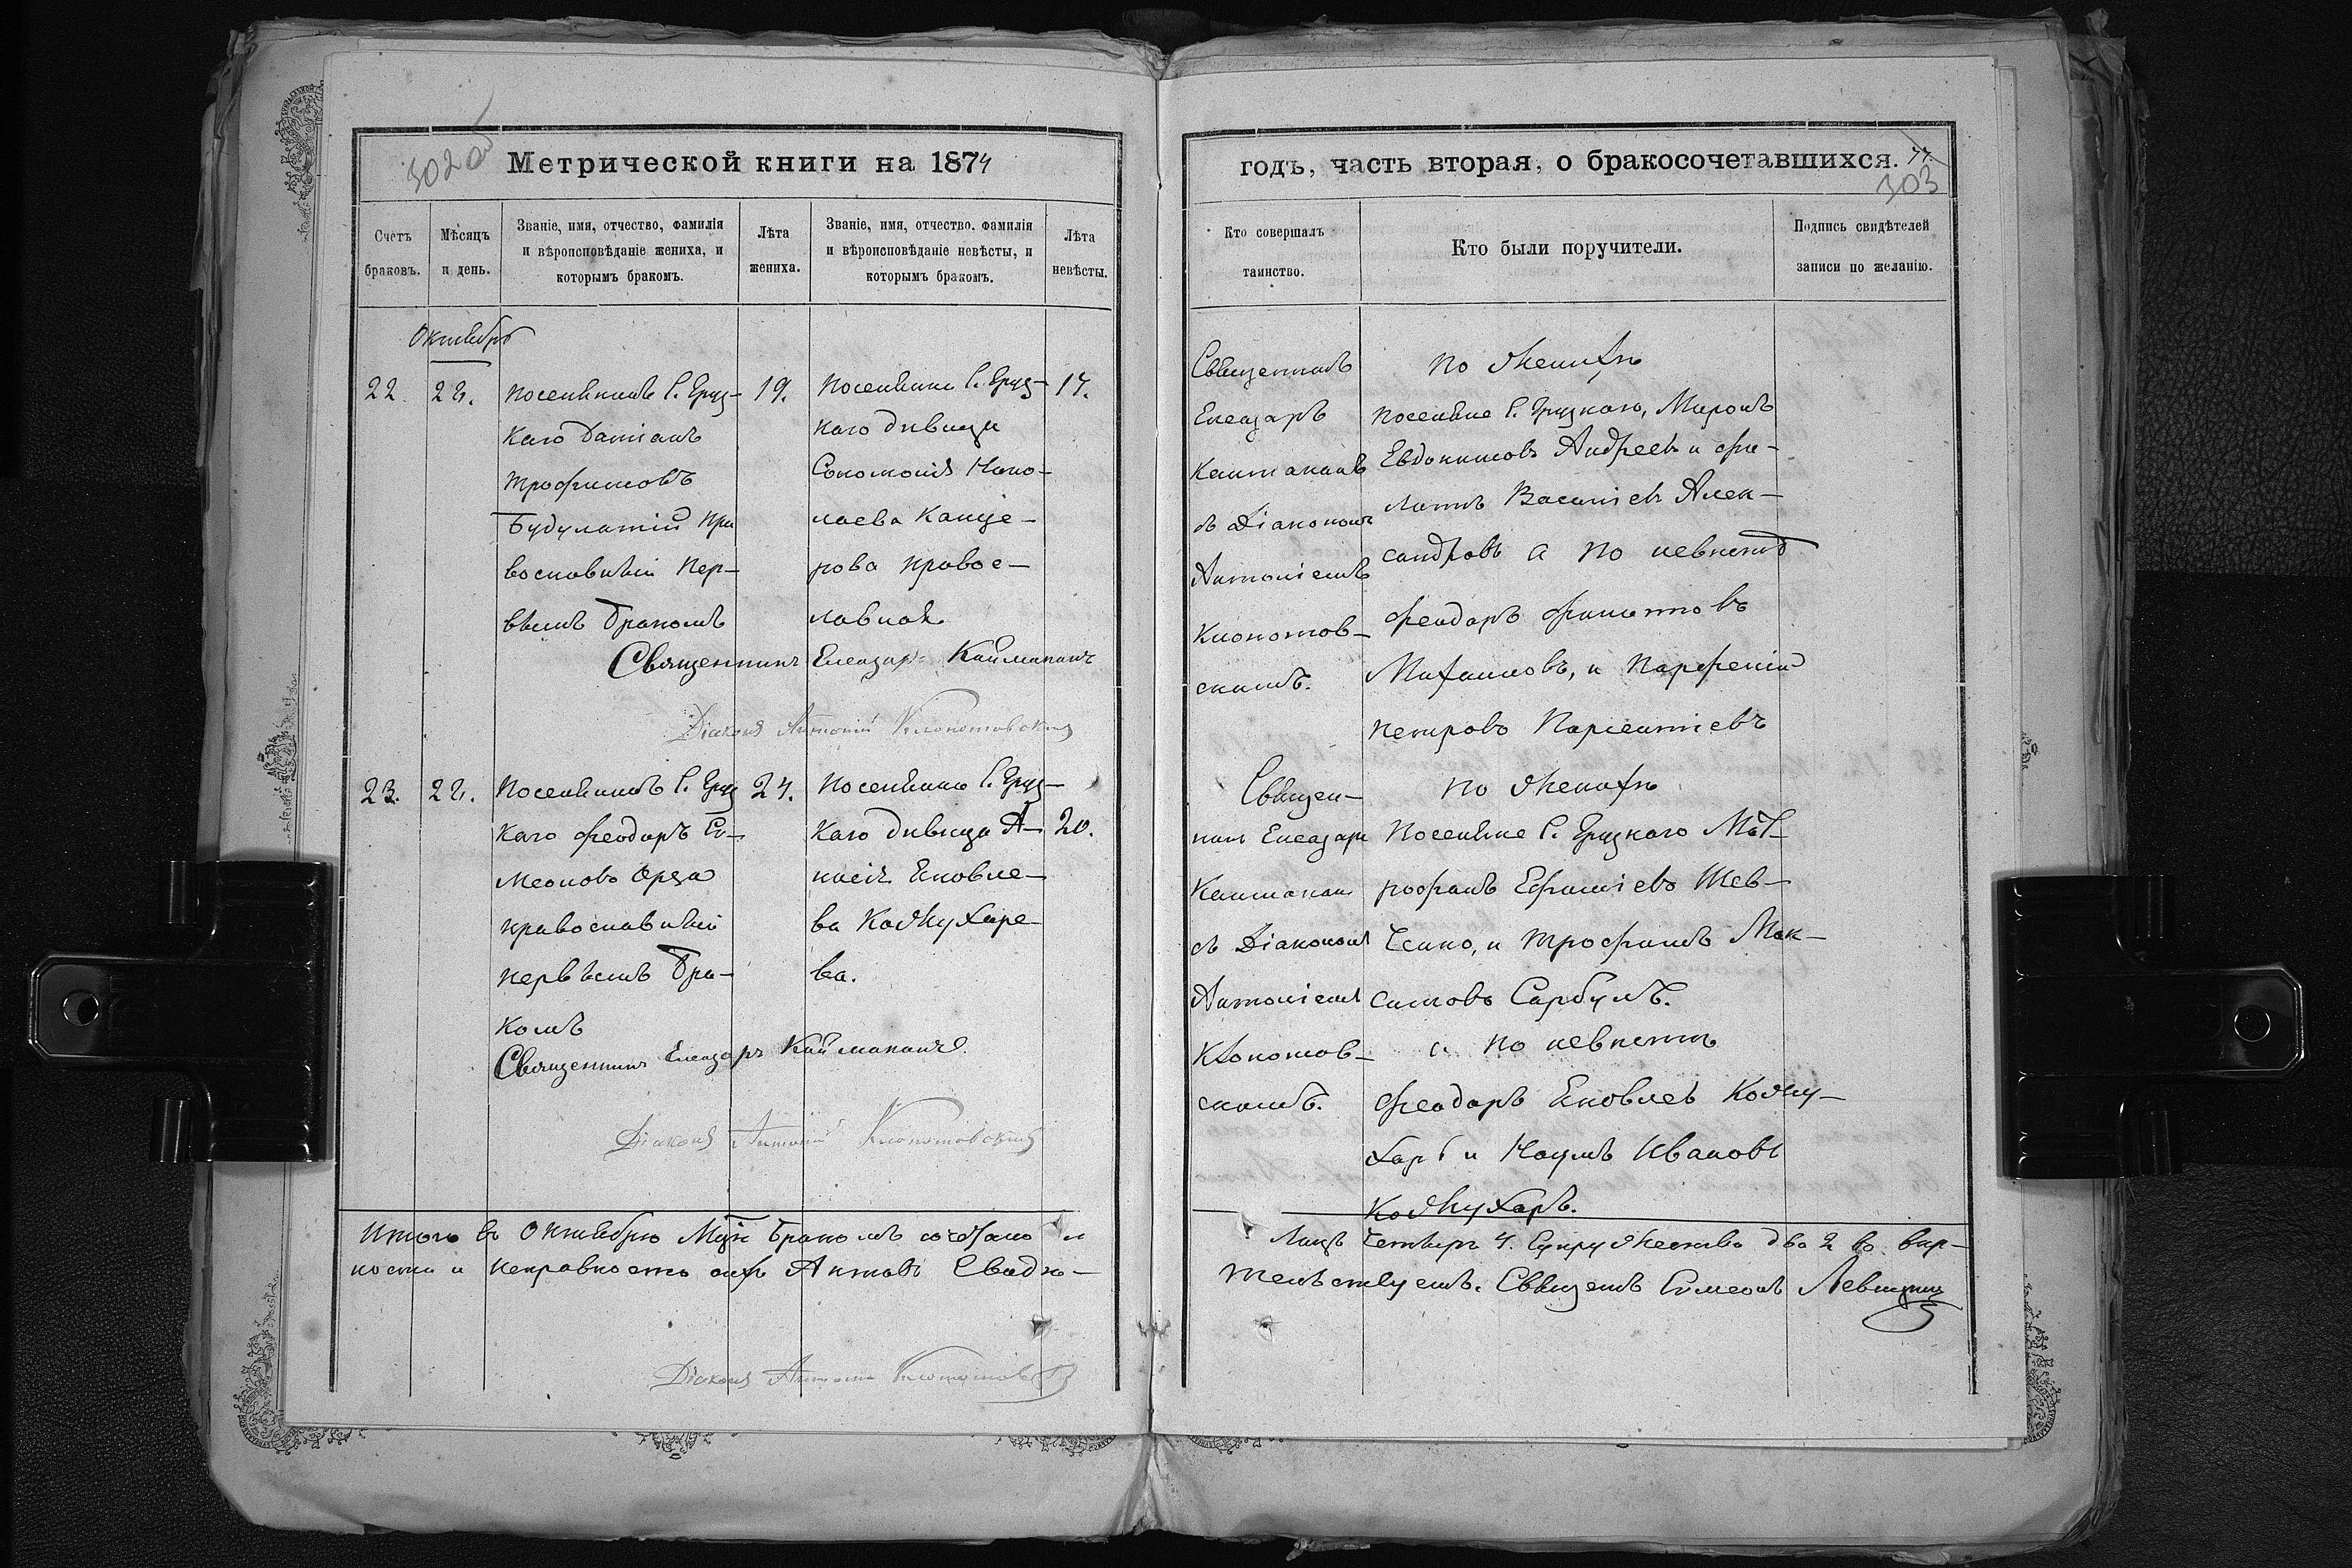 302 об
Метрической книги на 1874
Счетъ браковъ.
Мѣсяцъ и день.
Званіе, имя, отчество, фамилія и вѣроисповѣданіе жениха, и которымъ бракомъ.
Лѣта жениха.
Званіе, имя, отчество, фамилія и вѣроисповѣданіе невѣсты, и которымъ бракомъ.
Лѣта невѣсты.
Октябрь
22.
22.
Поселянинъ С. Груз-
каго Даміанъ
Трофимовъ
Будулатій пра
вославный пер-
вымъ бракомъ
19.
Поселянка С. Груз-
каго дѣвица
Соломонія Нико-
лаева Канце-
рова правос-
лавная
17.
Священникъ Елеазаръ Каймаканъ
Діаконъ Антоній Клопотовскій
23.
22.
Поселянинъ С. Груз
каго Феодоръ Си-
меоновъ Орза
православный
первымъ бра-
комъ
24.
Поселянка С. Груз-
каго дѣвица А-
насія Яковле-
ва Кожухаре-
ва.
20.
Священникъ Елеазаръ Каймаканъ
Діаконъ Антоній Клопотовскій
Итого въ Октябрѣ Мцѣ бракомъ сочетано
ности и исправность сихъ Актовъ Свидѣ-
Діаконъ Антоній
годъ, часть вторая, о бракосочетавшихся.
303
Кто совершалъ таинство.
Кто были поручители.
Подпись свидѣтелей записи по желанію.
Священникъ
Елеазаръ
Каймаканъ
съ Діакономъ
Антоніемъ
Клопотов-
скимъ.
по женихѣ
поселяне С. Грузкаго, Миронъ
Евдокимовъ Андреевъ и Фи-
латъ Васильевъ Алек-
сандровъ а по невѣстѣ
Феодоръ Филиповъ
Михаиловъ, и Парфеній
Петровъ
Священ-
никъ Елеазаръ
Каймаканъ
съ Діакономъ
Антоніемъ
Клопотов-
скимъ.
по женихѣ
Поселяне С. Грузкаго Мит-
рофанъ Ефиміевъ Шев-
ченко, и Трофимъ Мак-
симовъ Сарбулъ.
а по невѣстѣ
Феодоръ Яковлевъ Кожу-
харь и Наумъ Ивановъ
Кожухарь.
Лицъ четыре 4. Супружества два 2 въ вѣр-
тельствуетъ. Священникъ Симеонъ Левицкій